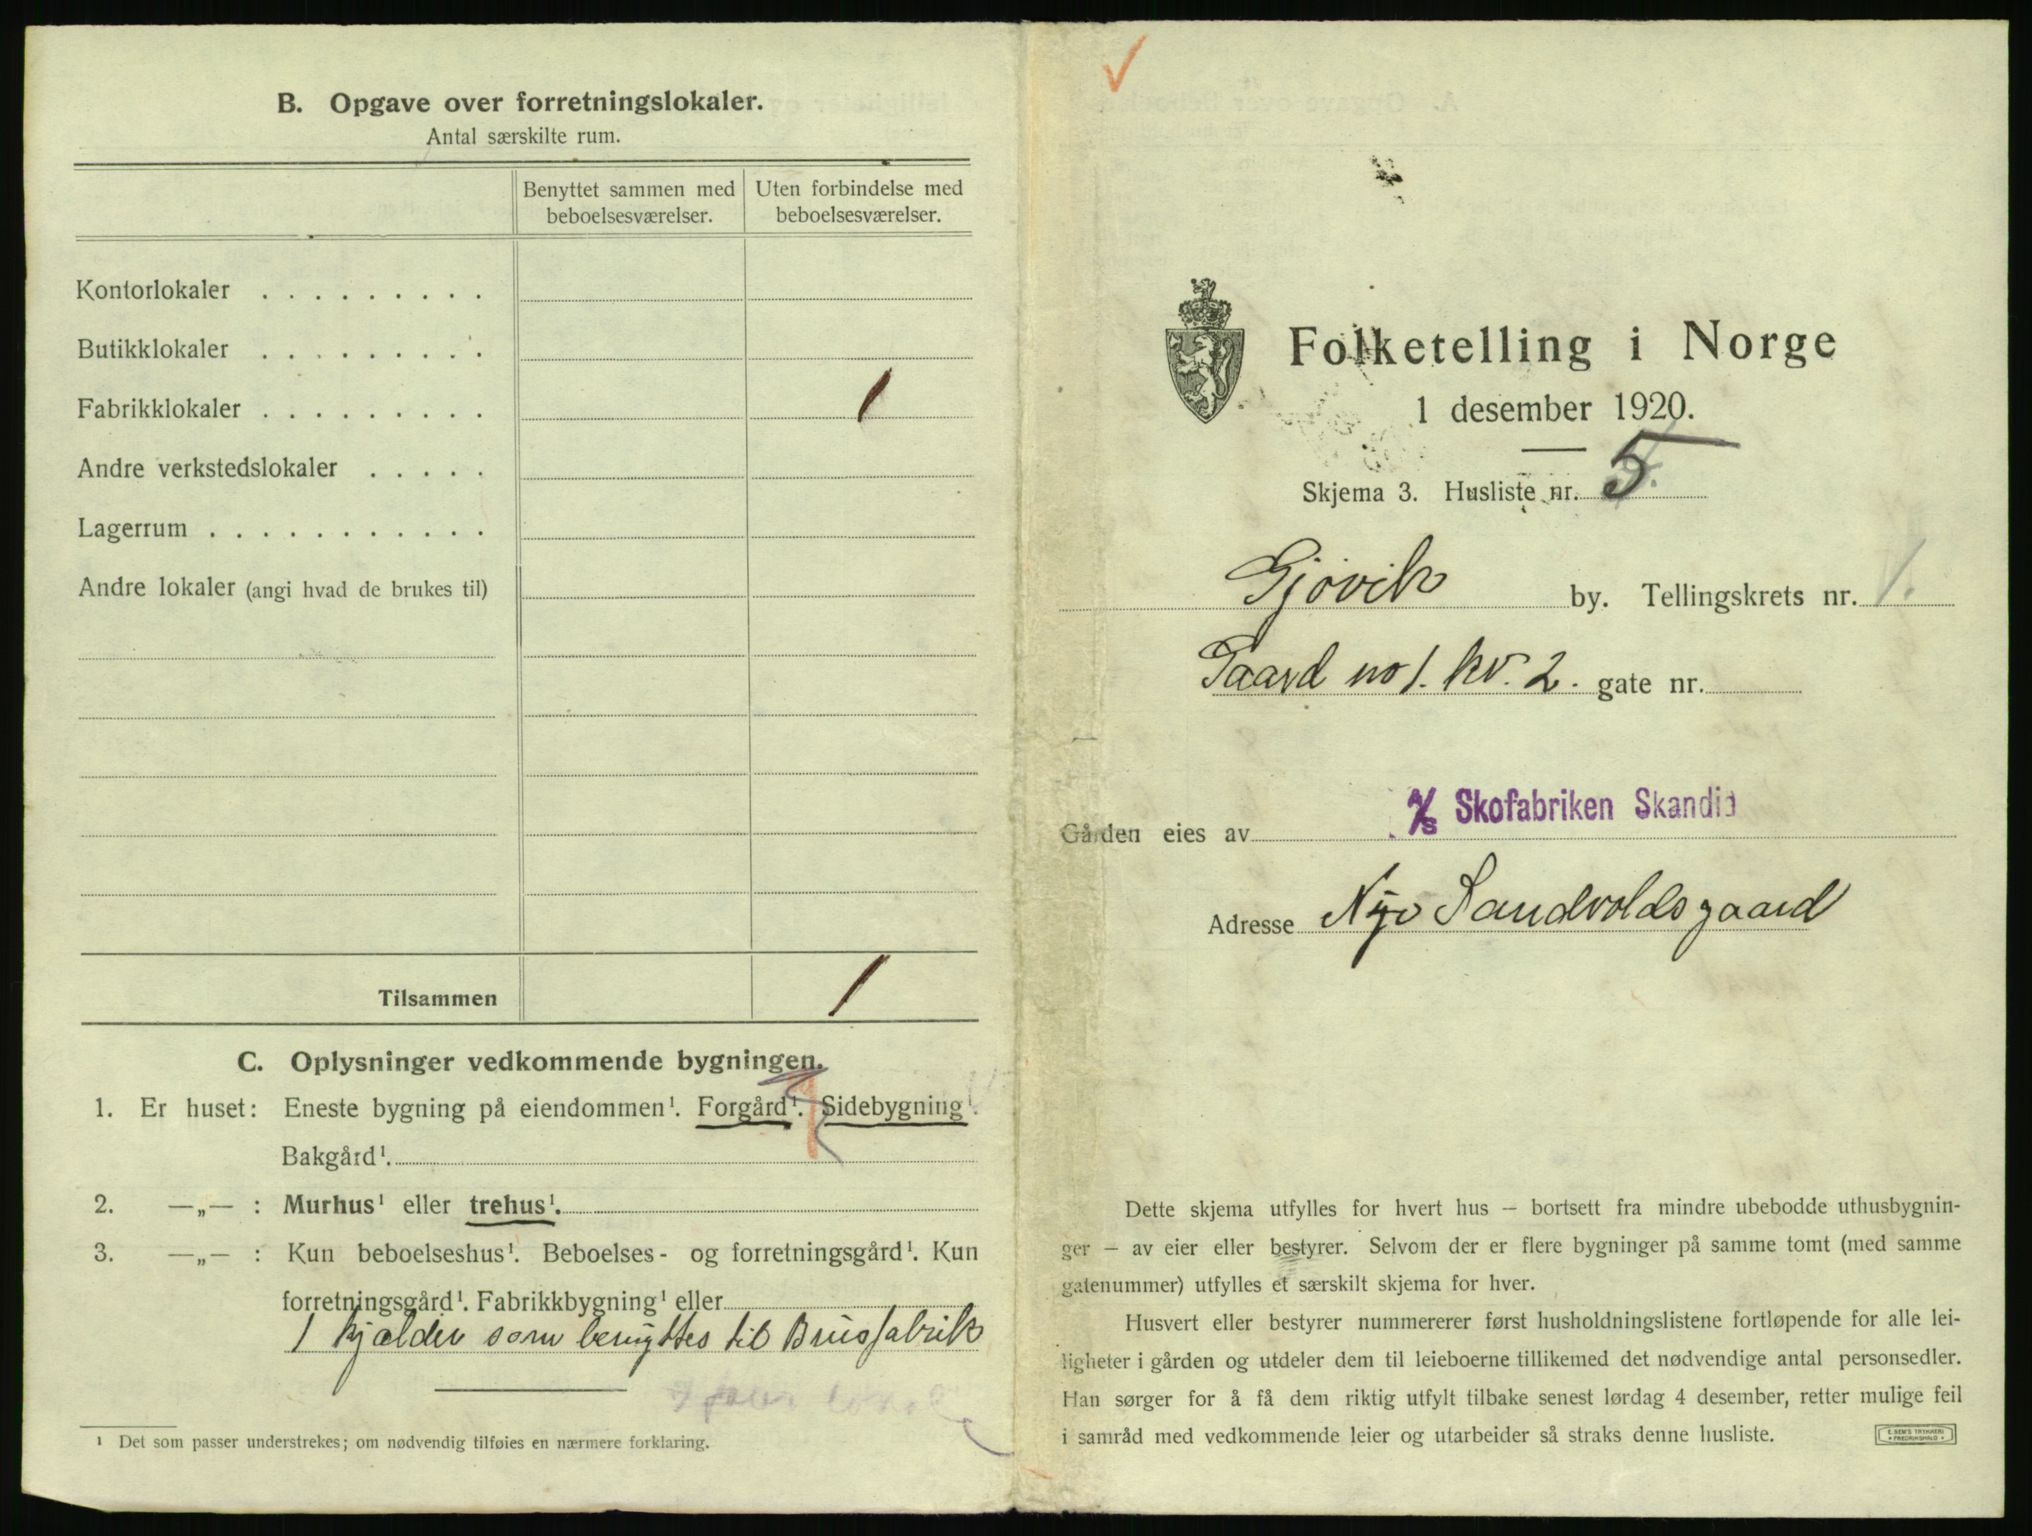 B. Opgave over forretningslokaler.
Antal særskilte rum.
Benyttet sammen med
beboelsesværelser.
Uten forbindelse med
beboelsesværelser.
Kontorlokaler . . . . . . . . .
Butikklokaler . . . . . . . . .
Fabrikklokaler . . . . . . . . . 1
Andre verkstedslokaler . . . . .
Lagerrum . . . . . . . . . . .
Andre lokaler (angi hvad de brukes til)
Tilsammen 1
C. Oplysninger vedkommende bygningen.
1. Er huset: Eneste bygning på eiendommen¹. Forgård¹. Sidebygning¹.
Bakgård¹.
2. —„— : Murhus¹ eller trehus¹.
3. —„— : Kun beboelseshus¹. Beboelses- og forretningsgård¹. Kun
forretningsgård¹. Fabrikkbygning¹ eller
1 kjælder som benyttes til Brusfabrik
¹ Det som passer understrekes; om nødvendig tilføies en nærmere forklaring.
Folketelling i Norge
1 desember 1920.
Skjema 3. Husliste nr. 5
Gjøvik by. Tellingskrets nr. 1.
Gaard no 1. kv. 2. gate nr.
Gården eies av A/S Skofabriken Skandia
Adresse Nye Sandvoldsgaard
Dette skjema utfylles for hvert hus – bortsett fra mindre ubebodde uthusbygnin-
ger – av eier eller bestyrer. Selvom der er flere bygninger på samme tomt (med samme
gatenummer) utfylles et særskilt skjema for hver.
Husvert eller bestyrer nummererer først husholdningslistene fortløpende for alle lei-
ligheter i gården og utdeler dem til leieboerne tillikemed det nødvendige antal personsedler.
Han sørger for å få dem riktig utfylt tilbake senest lørdag 4 desember, retter mulige feil
i samråd med vedkommende leier og utarbeider så straks denne husliste.
E. SEM'S TRYKKERI
• FREDRIKSHALD •